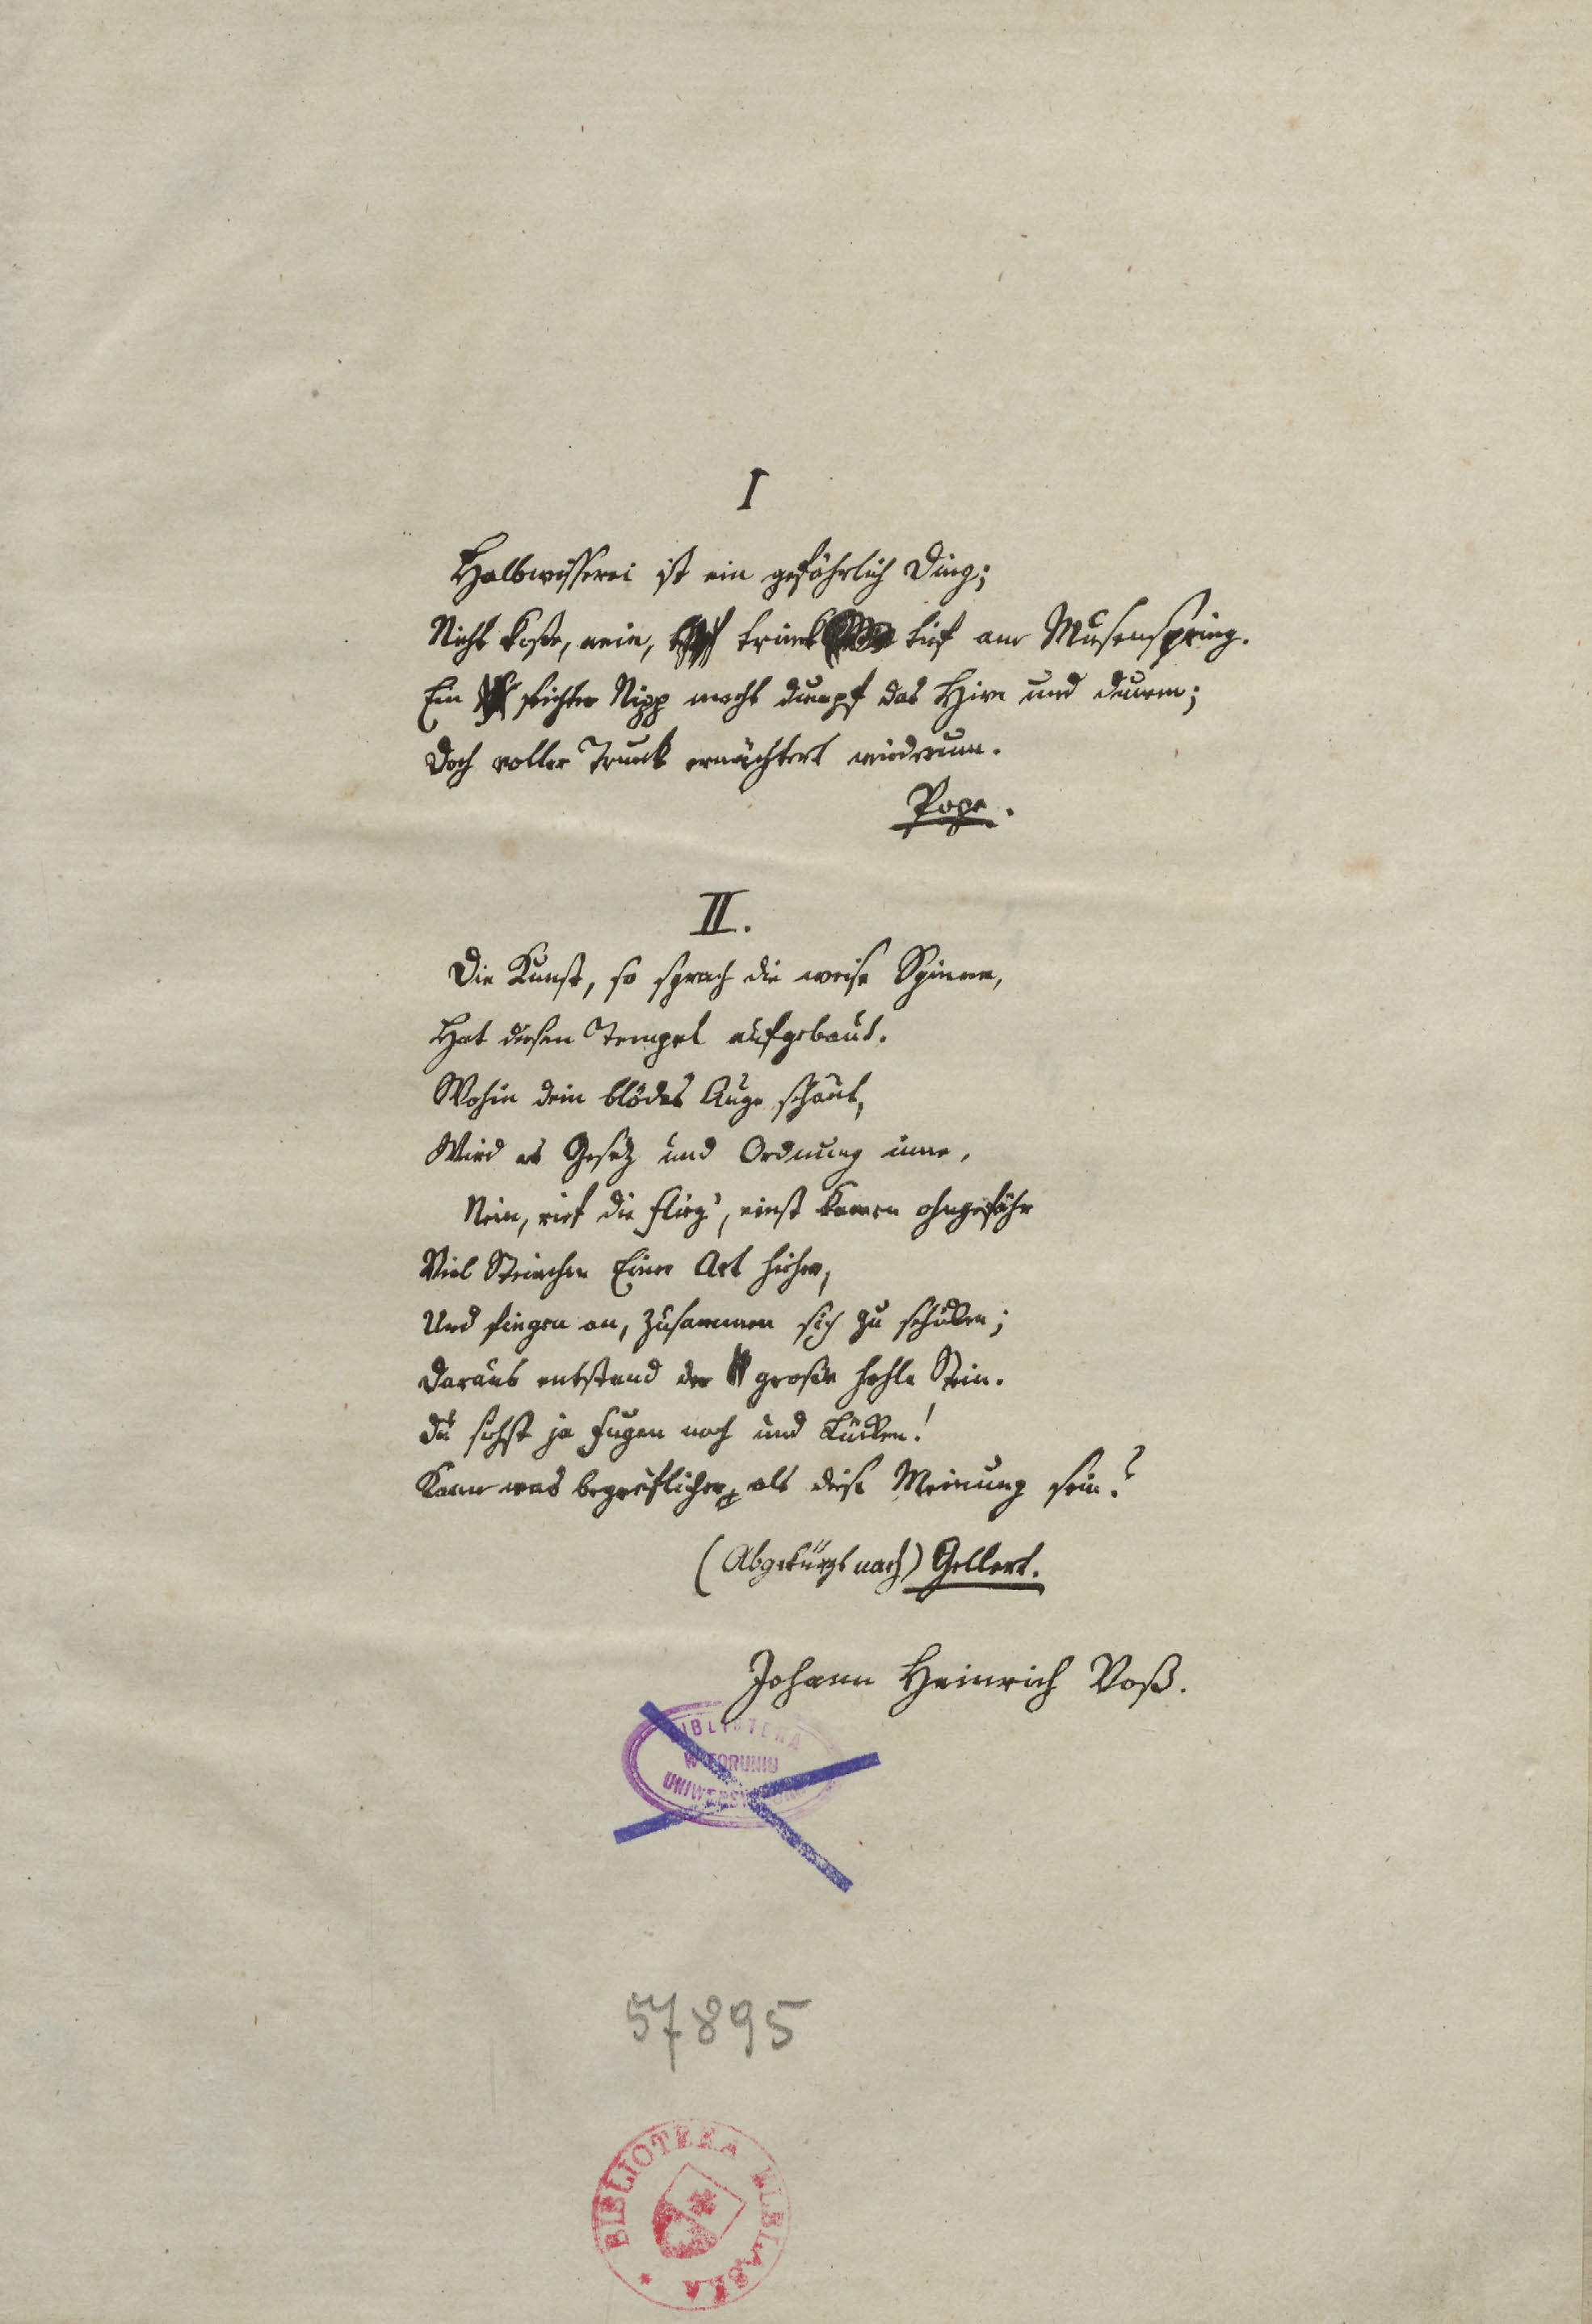 I
Halbwisserei ist ein gefährlich Ding;
Nicht koste, nein, trink tief am Musenspring.
Ein seichter Nipp macht dumpf das Hirn und dumm;
Doch voller Trunk ernüchtert wiederum.
Pope.
II.
Die Kunst, so sprach die weise Spinne,
Hat diesen Tempel aufgebaut.
Wohin dein blödes Auge schaut,
Wird es Gesez und Ordnung inne.
Nein, rief die Flieg', einst kamen ohngefähr
Viel Steinchen Einer Art hieher,
Und fingen an, zusammen sich zu schicken;
Daraus entstand der große hohle Stein.
Du siehst ja Fugen noch und Lücken!
Kann was begreiflicher als diese Meinung sein?
(Abgekürzt nach) Gellert.
Johann Heinrich Voß.
BIBLIOTEKA
W TORUNIU
57895
BIBLIOTEKA ELBLĄSKA